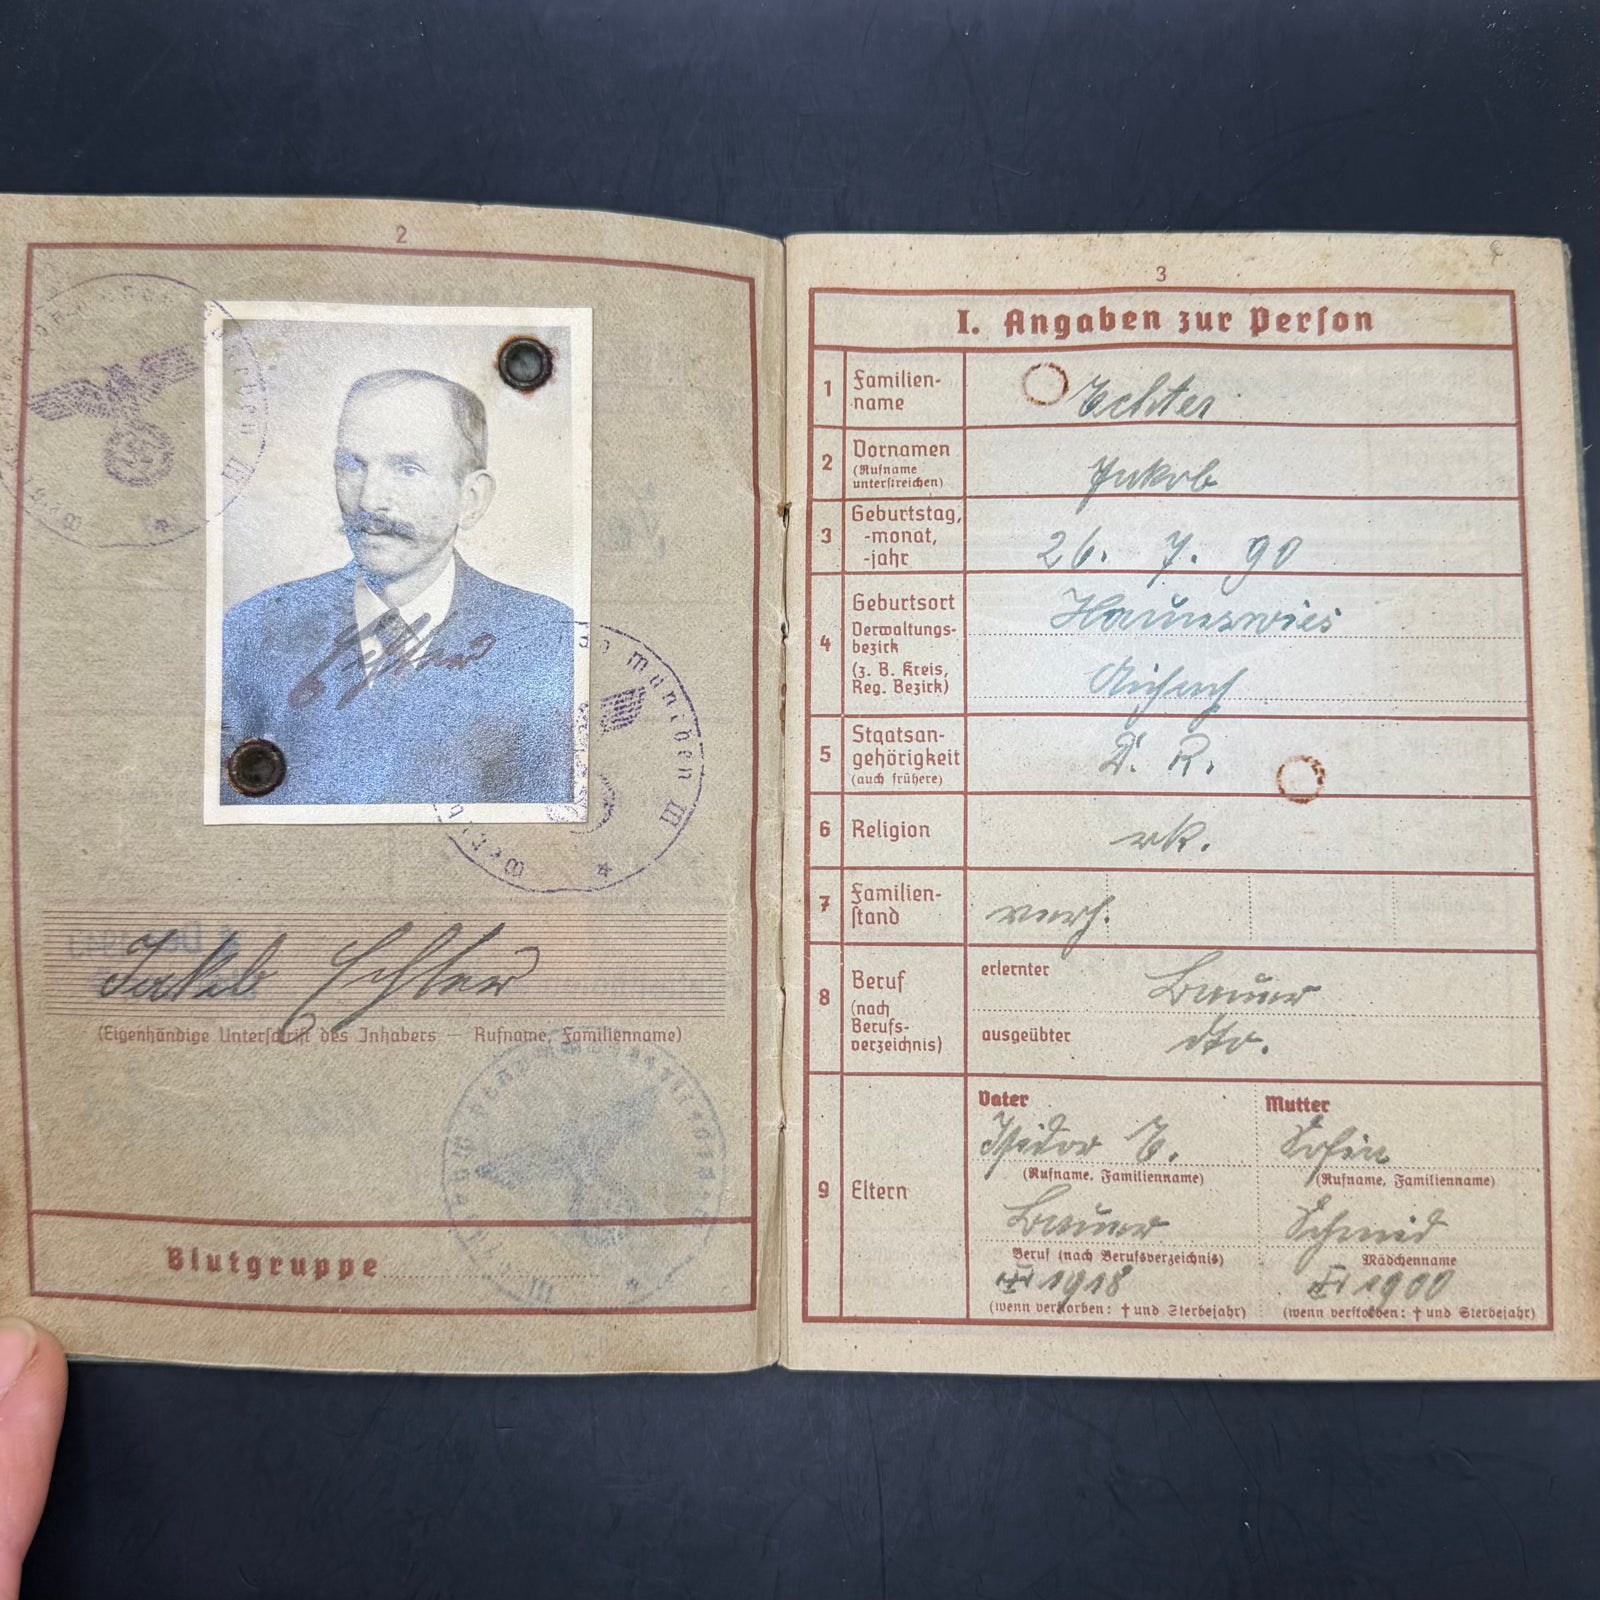 2
Echter
Jakob Echter
(Eigenhändige Unterschrift des Inhabers — Rufname, Familienname)
Blutgruppe
München III
3
I. Angaben zur Person
1 Familien-
name
Echter
2 Vornamen
(Rufname
unterstreichen)
Jakob
3 Geburtstag,
-monat,
-jahr
26. 7. 90
4 Geburtsort
Verwaltungs-
bezirk
(z. B. Kreis,
Reg. Bezirk)
Haunswies
Aichach
5 Staatsan-
gehörigkeit
(auch frühere)
D. R.
6 Religion
rk.
7 Familien-
stand
verh.
8 Beruf
(nach
Berufs-
verzeichnis)
erlernter Bauer
ausgeübter dto.
9 Eltern
Vater Mutter
Isidor E. Sofie
(Rufname, Familienname) (Rufname, Familienname)
Bauer Schmid
Beruf (nach Berufsverzeichnis) Mädchenname
1918 1900
(wenn verstorben: † und Sterbejahr) (wenn verstorben: † und Sterbejahr)